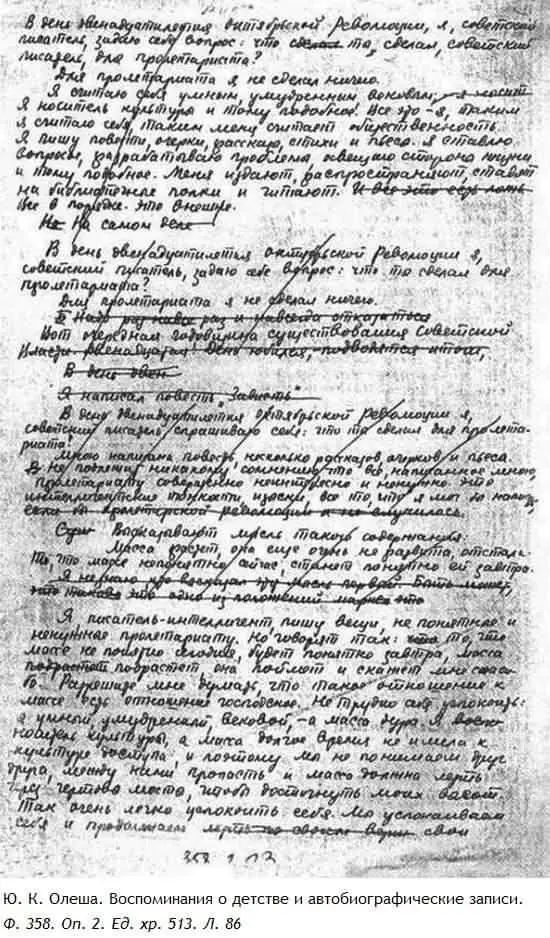 В день двенадцатилетия октябрьской Революции, я, советский
писатель, задаю себе вопрос: что сделал то сделал, советский
писатель, для пролетариата?
Для пролетариата я не сделал ничего.
Я считаю себя умным, умудренным вековой; я носит
Я носитель культуры и тому подобное! Все это - я, таким
я считаю себя, таким меня считает общественность.
Я пишу повести, очерки, рассказы, стихи и пьесы. Я ставлю
вопросы, задрабатываю проблемы, освещаю стороны жизни
и тому подобное. Меня издают, распространяют, ставят
на библиотечные полки и читают. И все это есть ложь
Все в порядке. Это внешне.
Не На самом деле
В день двенадцатилетия октябрьской Революции я,
советский писатель, задаю себе вопрос: что то сделал для
пролетариата?
Для пролетариата я не сделал ничего.
Надо раз и навсегда отказаться
Вот очередная годовщина существования Советской
Власти. Двенадцатая! День юбилея, подводятся итоги,
В день двен
Я написал повесть "Зависть"
В день двенадцатилетия октябрьской Революции я,
советский писатель спрашиваю себя: что ты сделал для пролета-
риата?
Мною написаны повесть, несколько рассказов, очерков и пьеса.
Не подлежит никакому сомнению что всё, написанное мною,
пролетариату совершенно неинтересно и ненужно. Это
интеллигентские тонкости, изыски, все то, что я мог бы
если бы пролетарской революции и не случилось.
Высказывают мысль такого содержания:
Масса растет, она еще очень не развита, отстала.
То, что массе непонятно сейчас, станет понятно ей завтра.
Я не знаю кто высказал эту мысль первый. Быть может,
это одно из положений
Я, писатель-интеллигент, пишу вещи, не понятные и
ненужные пролетариату. Но говорят так: что то, что
массе не понятно сегодня, будет понятно завтра, масса
подрастет подрастет она поймет и скажет мне спаси-
бо. Разрешите мне думать, что такое отношение к
массе есть отношение господское. Не трудно себя успокоить:
я умный, умудренный, вековой, - а масса дура. Я
носитель культуры, а масса долгое время не имела к
культуре доступа, и поэтому мы не понимаем друг
друга, между нами пропасть и масса должна переть
через чертово место, чтоб достигнуть моих высот.
Так очень легко успокоить себя. Мы успокаиваем
себя и продолжаем переть свои
Ю. К. Олеша. Воспоминания о детстве и автобиографические записи.
Ф. 358. Оп. 2. Ед. хр. 513. Л. 86